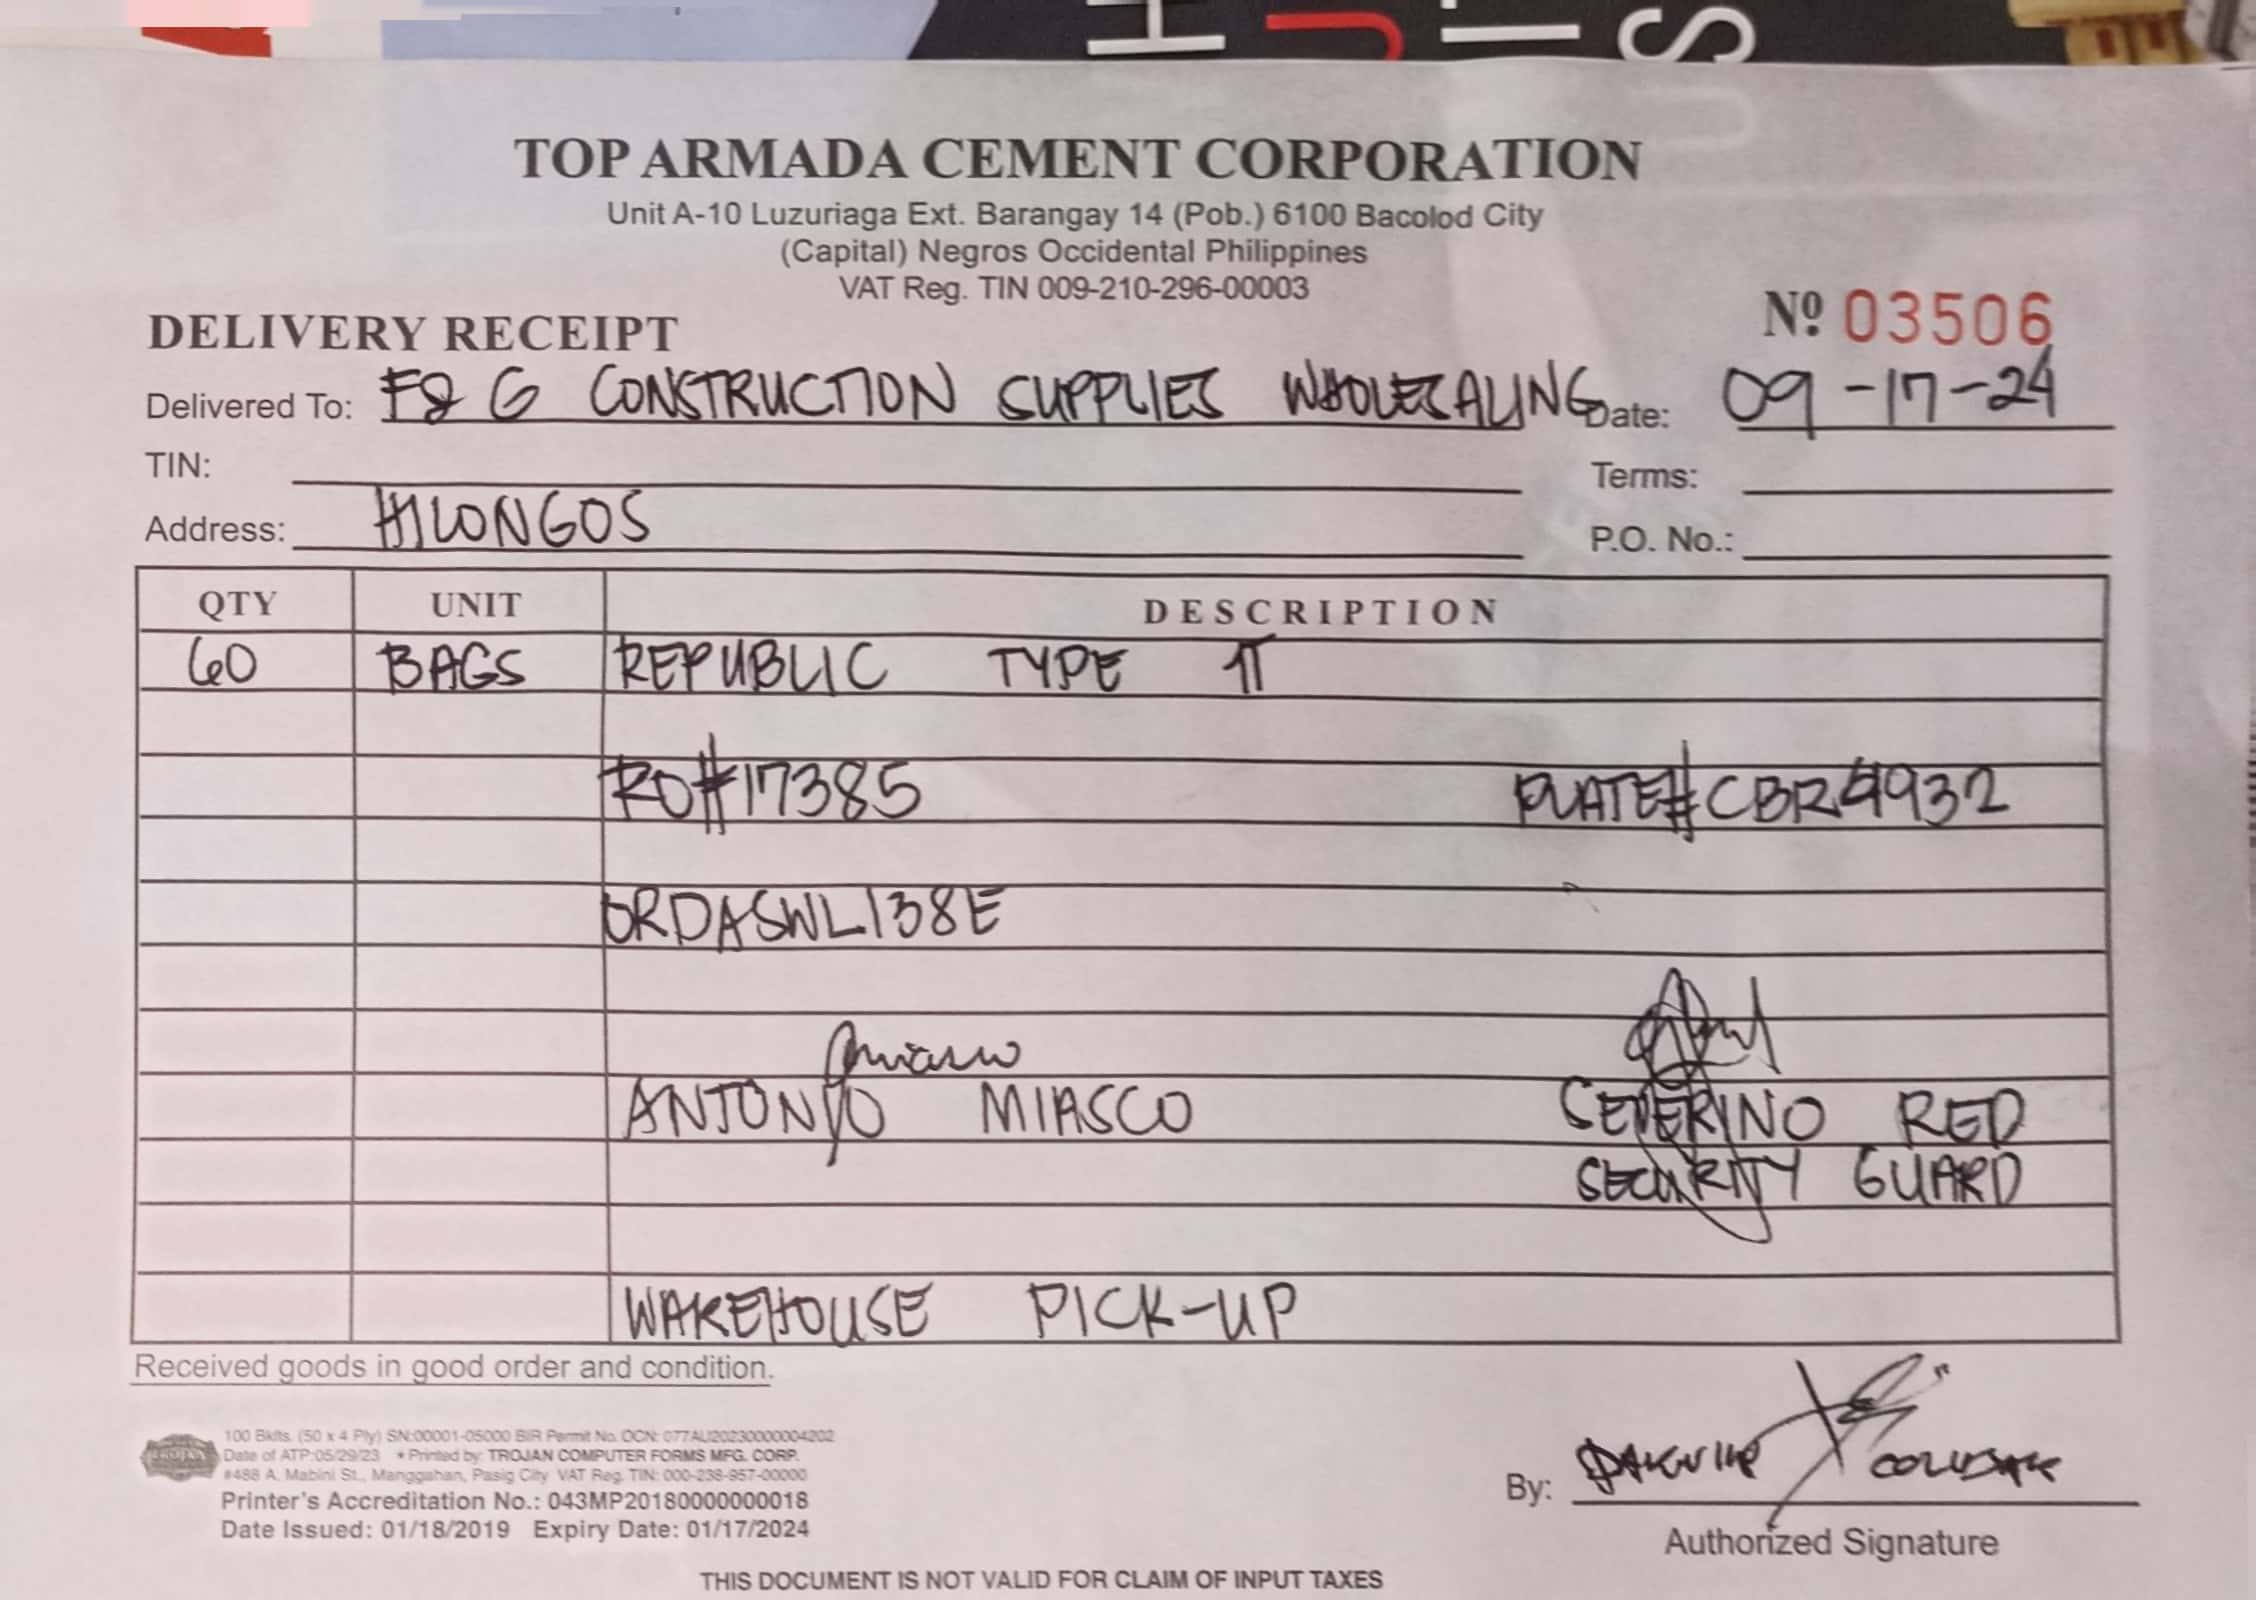 H U I S
TOP ARMADA CEMENT CORPORATION
Unit A-10 Luzuriaga Ext. Barangay 14 (Pob.) 6100 Bacolod City
(Capital) Negros Occidental Philippines
VAT Reg. TIN 009-210-296-00003
DELIVERY RECEIPT Nº 03506
Delivered To: F&G CONSTRUCTION SUPPLIES WHOLESALING Date: 09-17-24
TIN: Terms:
Address: HILONGOS P.O. No.:
QTY UNIT DESCRIPTION
60 BAGS REPUBLIC TYPE 1T
RO#17385 PLATE#CBR4932
ORDASWL138E
ANTONIO MIASCO SEVERINO RED
SECURITY GUARD
WAREHOUSE PICK-UP
Received goods in good order and condition.
100 Bklts. (50 x 4 Ply) SN:00001-05000 BIR Permit No. OCN: 077AU20230000004202
Date of ATP:05/29/23 * Printed by: TROJAN COMPUTER FORMS MFG. CORP.
#488 A. Mabini St., Manggahan, Pasig City VAT Reg. TIN: 000-238-957-00000
Printer's Accreditation No.: 043MP20180000000018
Date Issued: 01/18/2019 Expiry Date: 01/17/2024
By:
Authorized Signature
THIS DOCUMENT IS NOT VALID FOR CLAIM OF INPUT TAXES